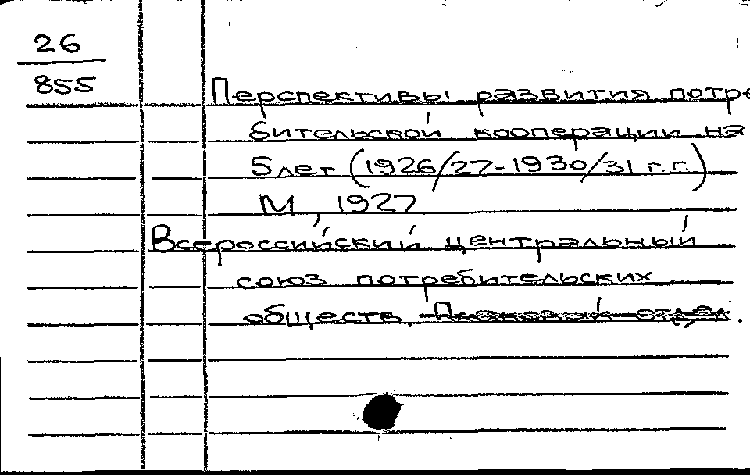 26
855
Перспективы развития потре
бительской кооперации на
5 лет (1926/27-1930/31 г.г.)
М, 1927
Всероссийский центральный
союз потребительских
обществ. Плановый отдел.